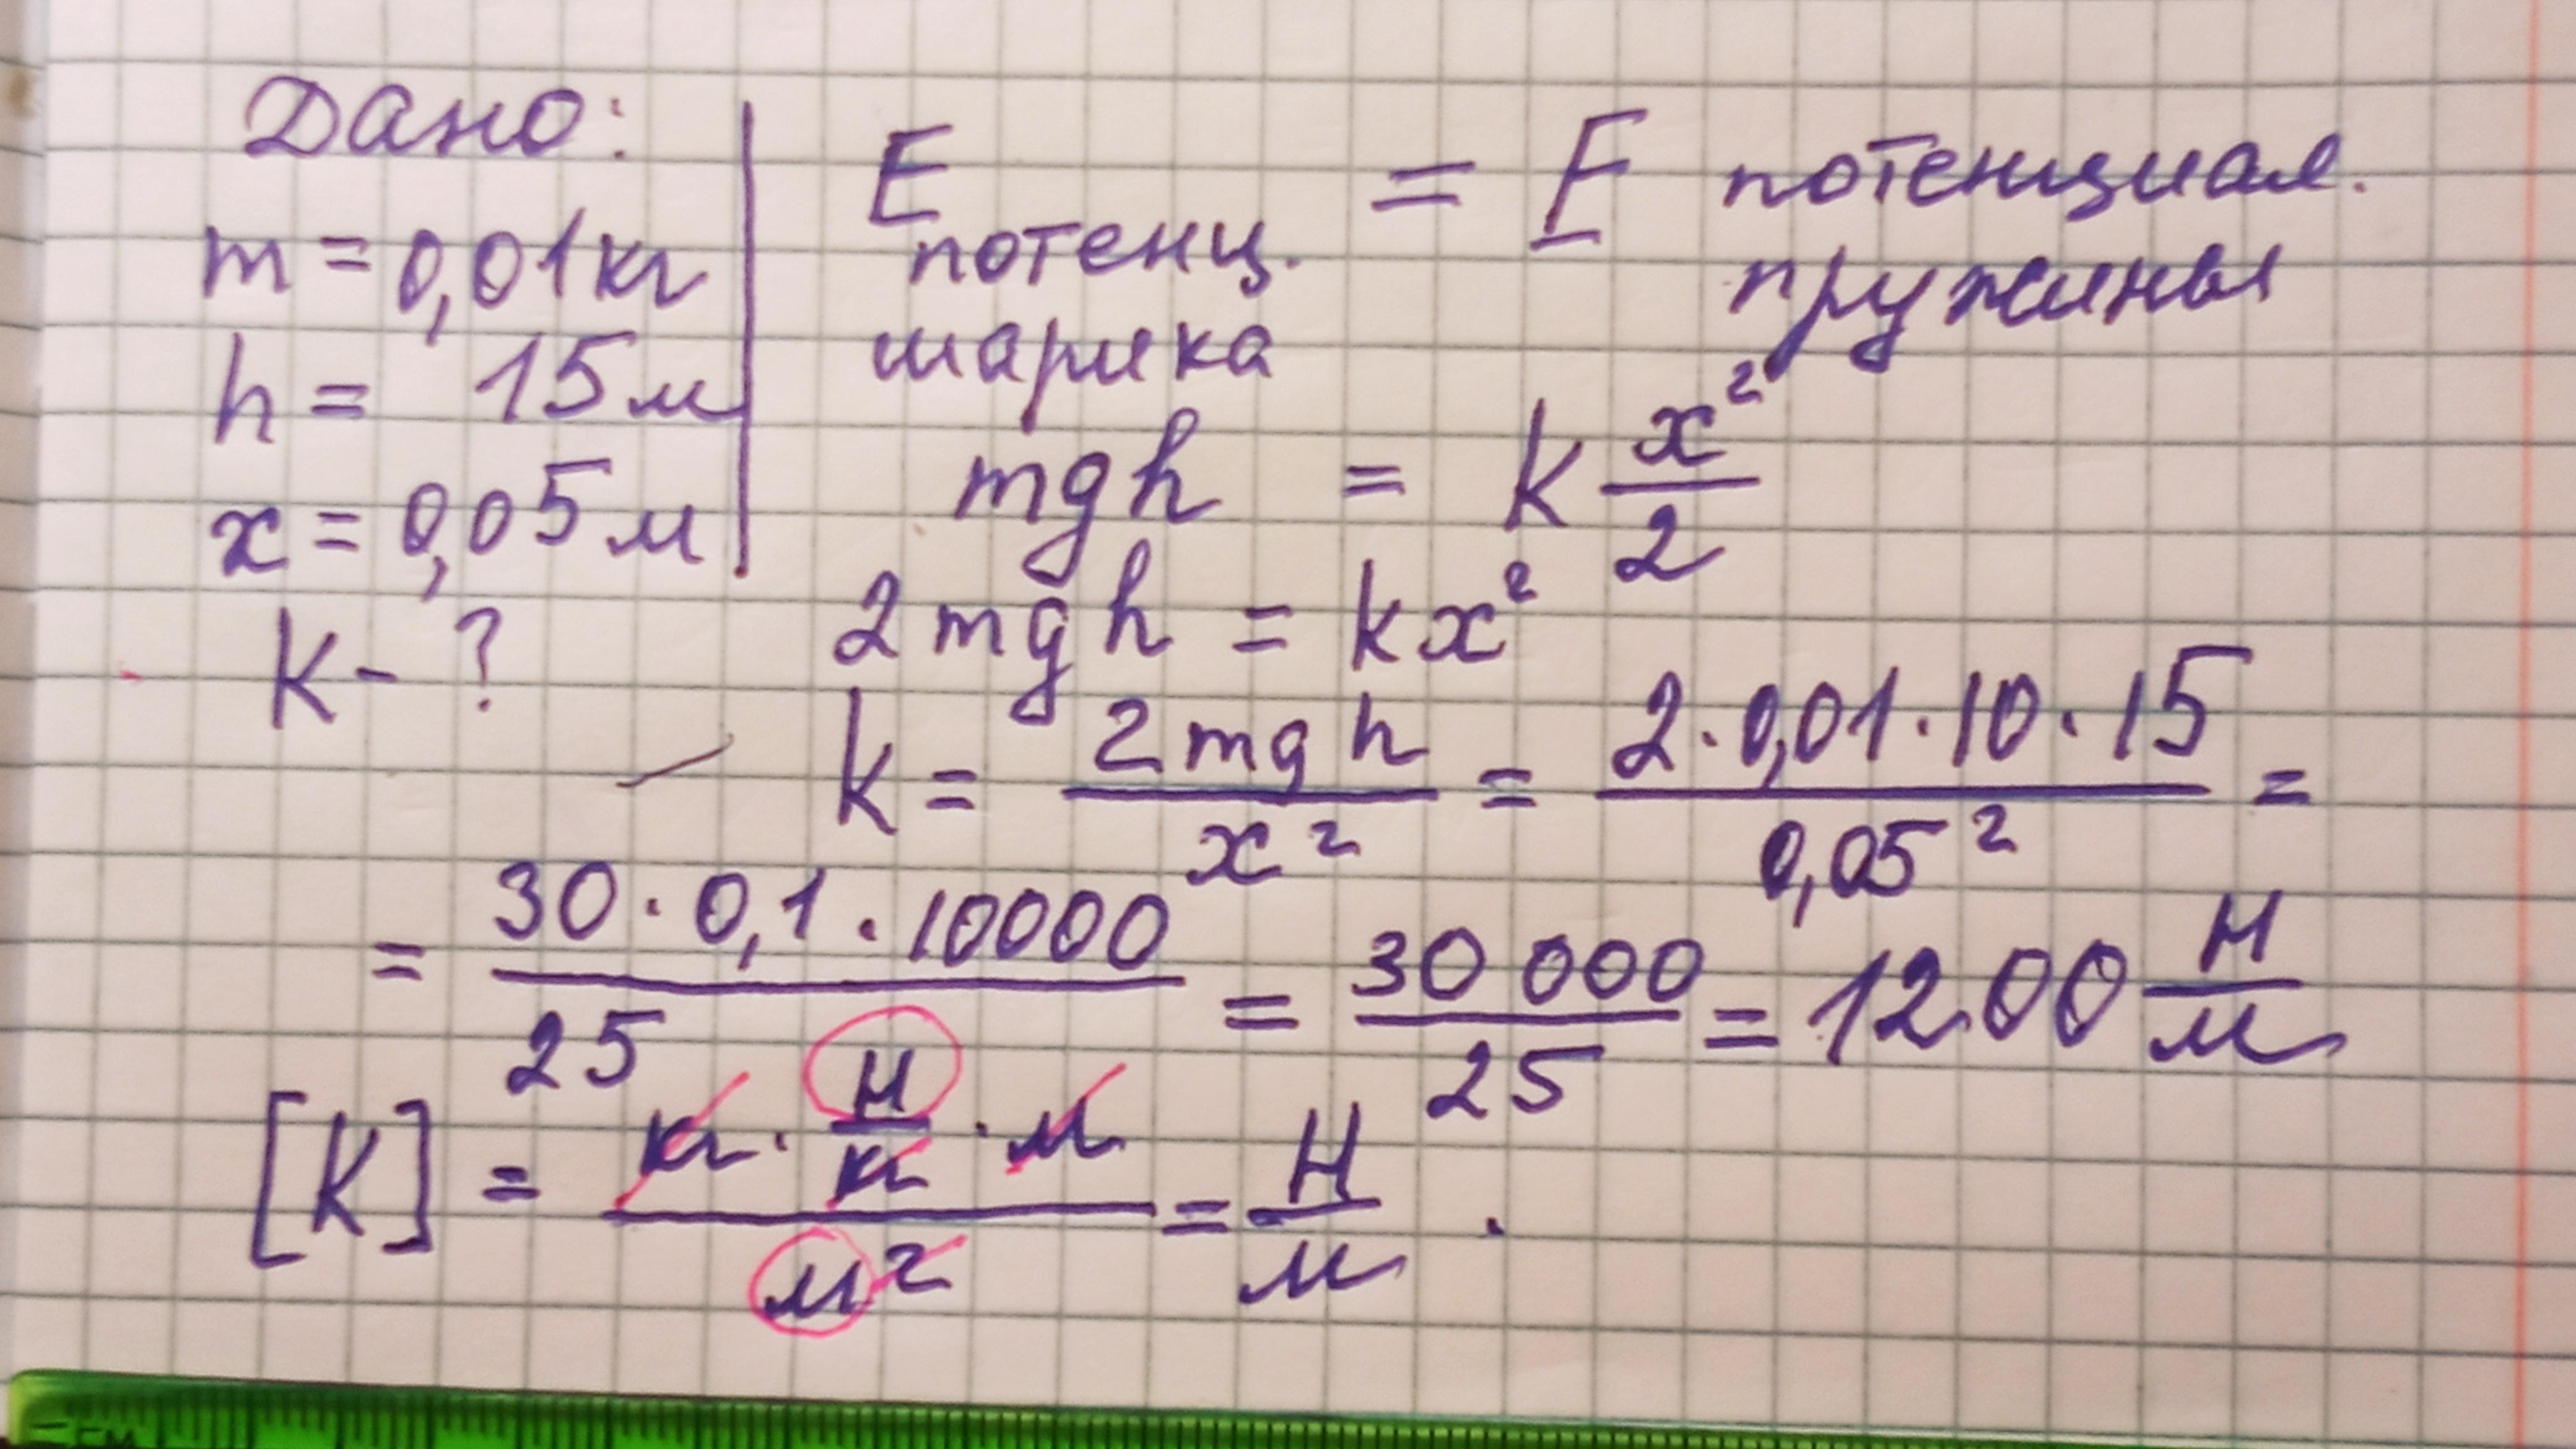 Дано:
m = 0,01 кг
h = 15 м
x = 0,05 м
K - ?
E потенц. шарика = E потенциал. пружины
mgh = k x²/2
2mgh = kx²
k = 2mgh/x² = 2·0,01·10·15/0,05² =
= 30·0,1·10000/25 = 30 000/25 = 1200 Н/м
[K] = кг · Н/кг · м/м² = Н/м .
см